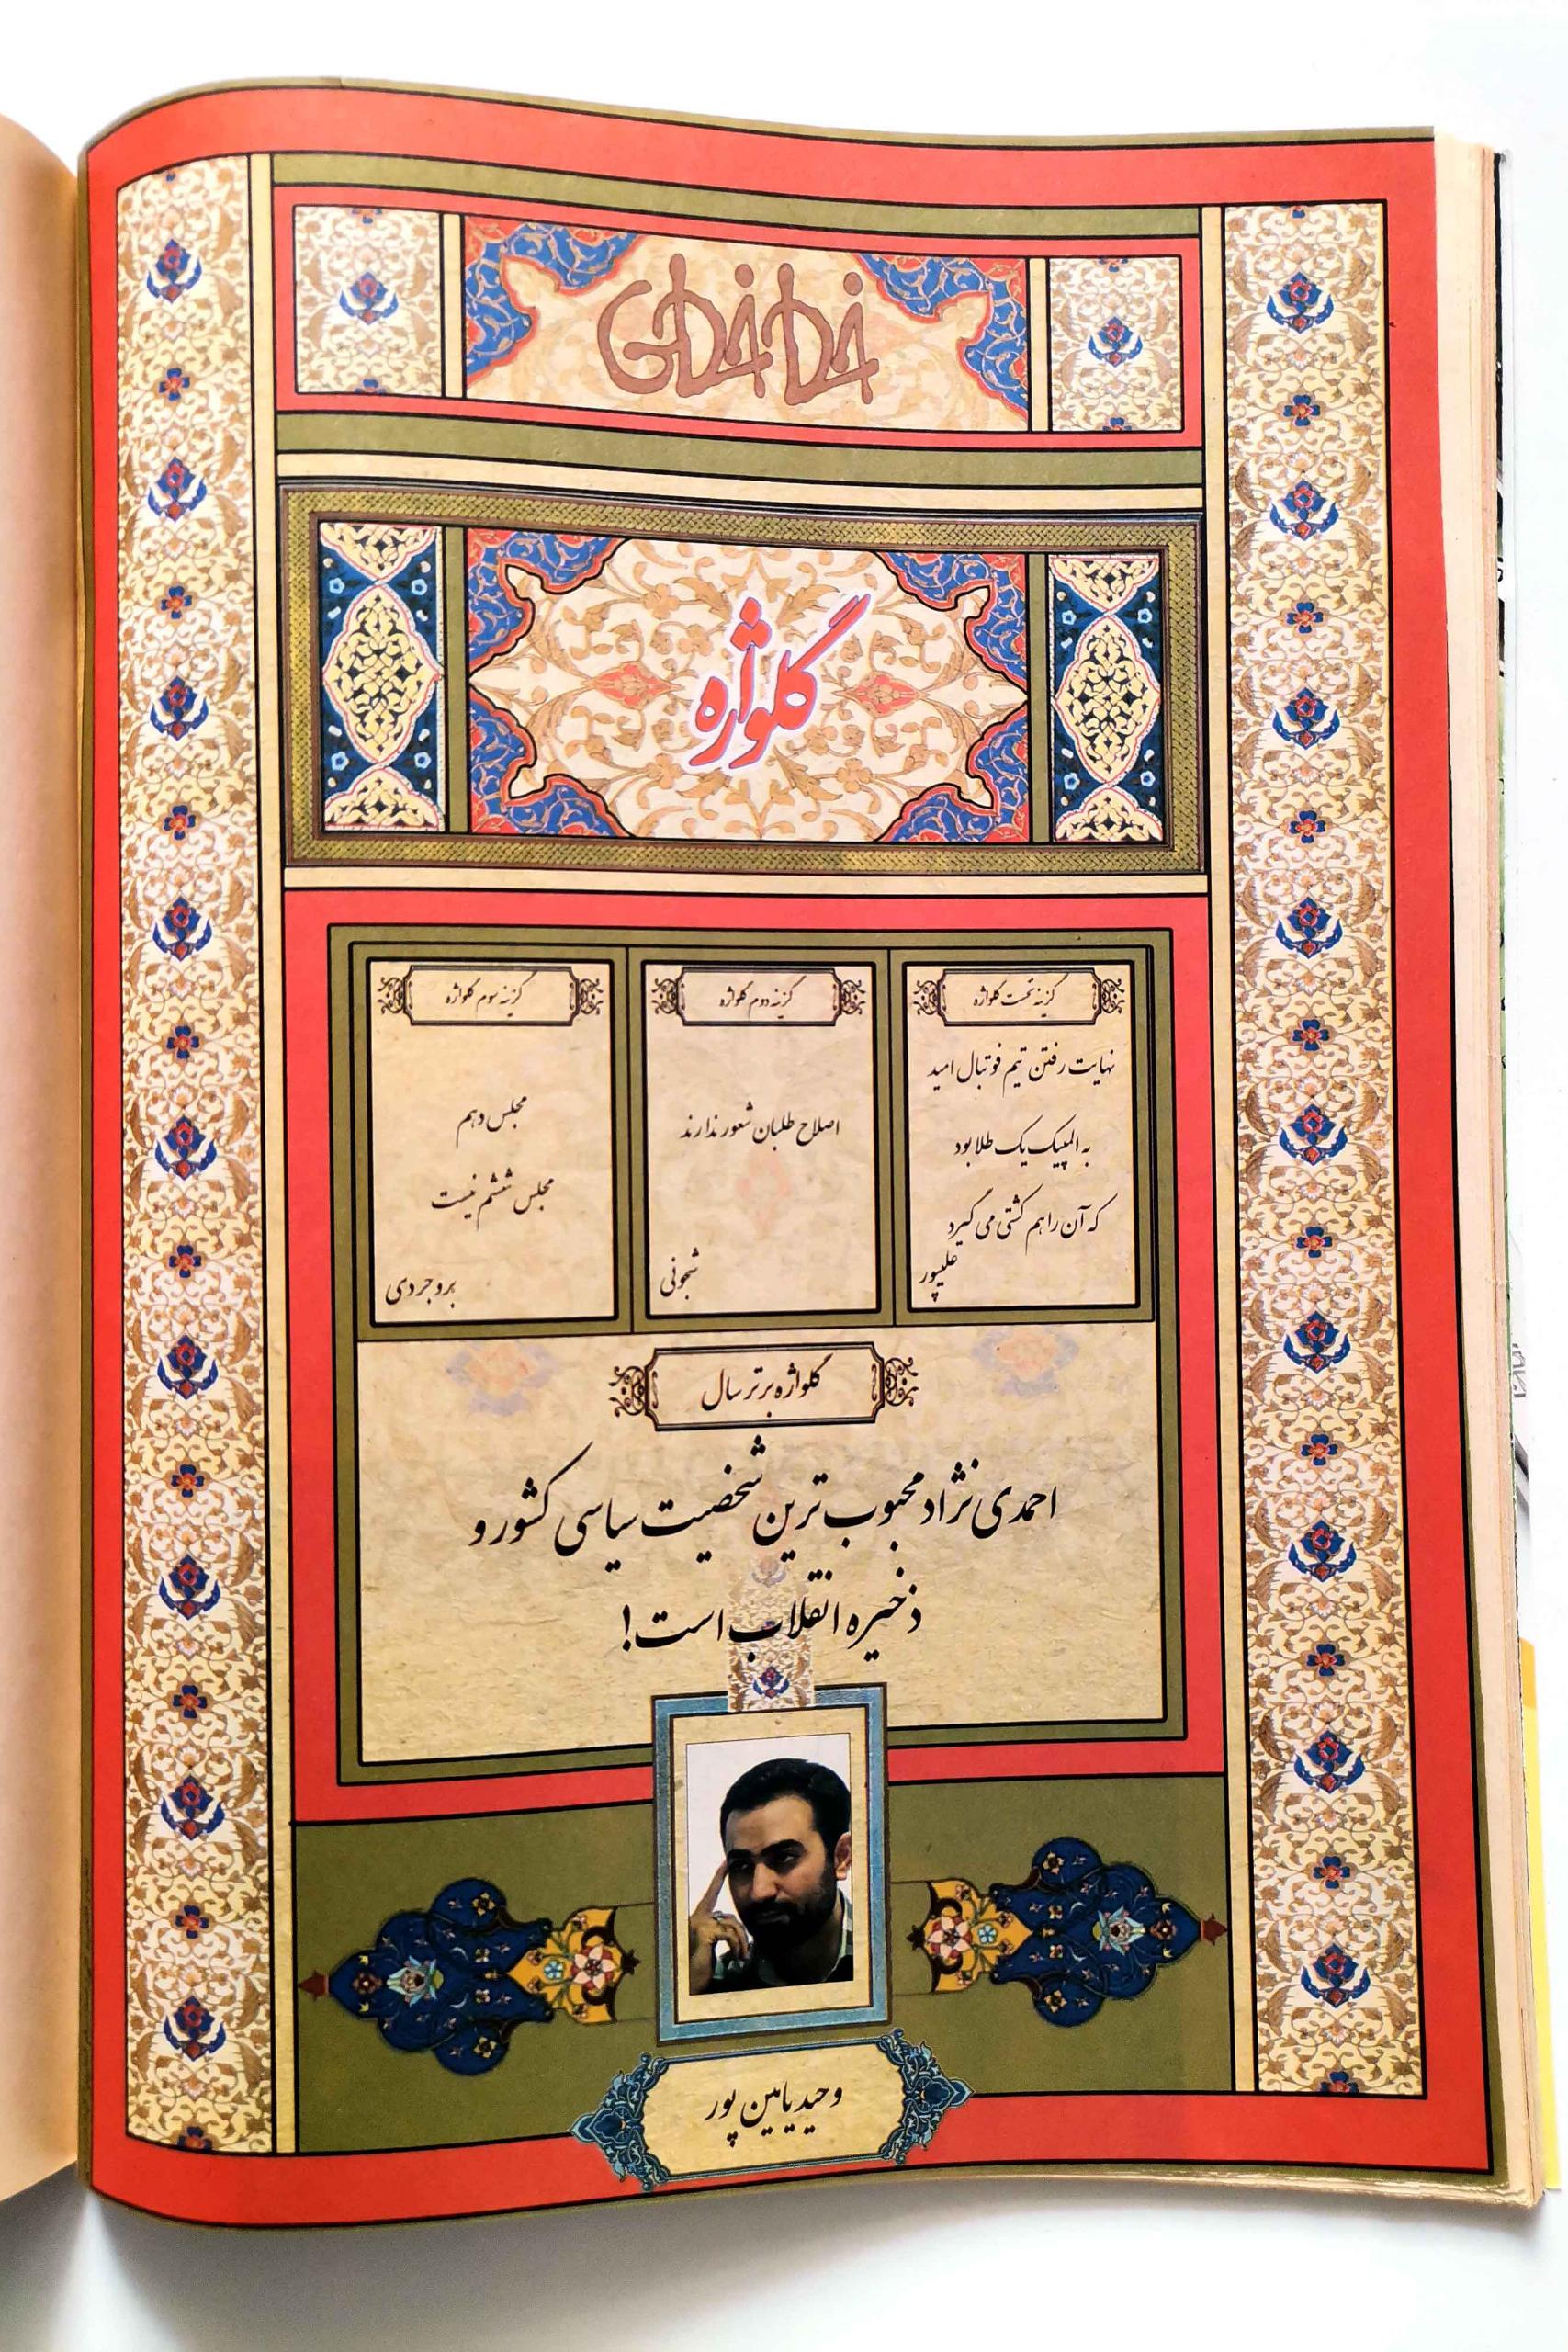 خط خطی
گلواژه
گزینه نخست گلواژه
نهایت رفتن تیم فوتبال امید
به المپیک یک طلا بود
که آن را هم کشتی می گیرد
علیپور
گزینه دوم گلواژه
اصلاح طلبان شعور ندارند
شجونی
گزینه سوم گلواژه
مجلس دهم
مجلس ششم نیست
بروجردی
گلواژه برتر سال
احمدی نژاد محبوب ترین شخصیت سیاسی کشور و
ذخیره انقلاب است!
وحید یامین پور